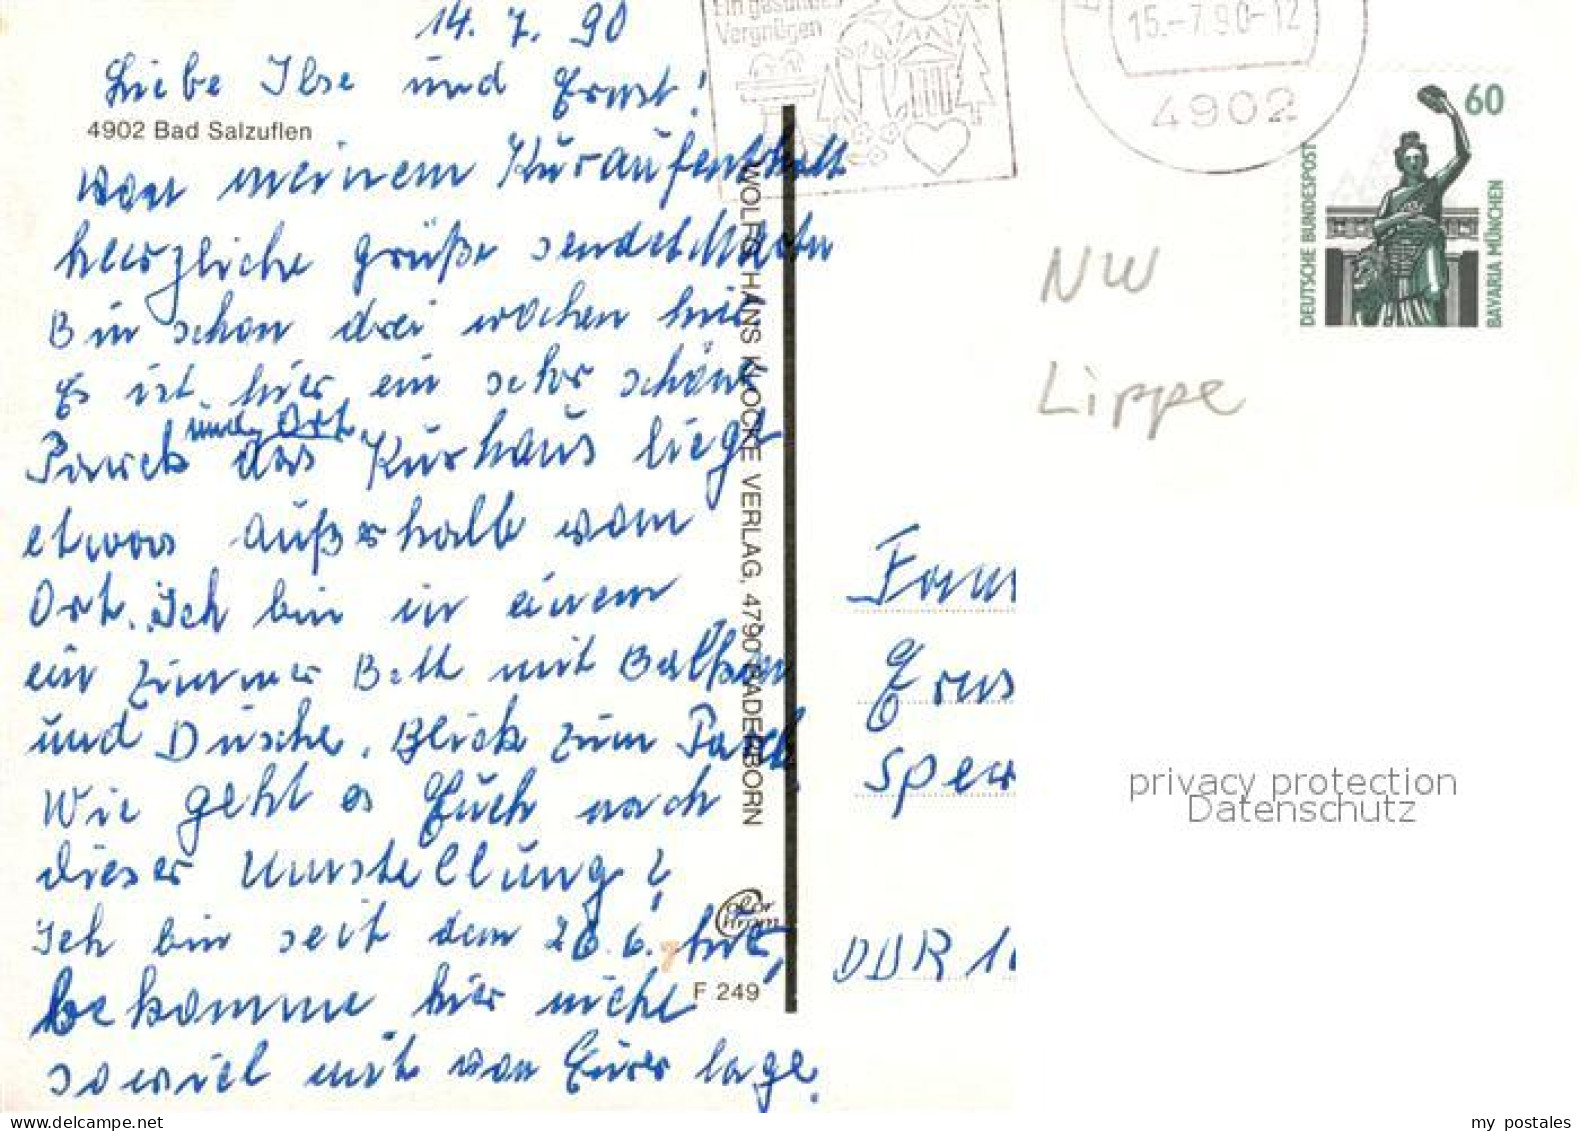 14. 7. 90
Liebe Ilse und Ernst!
4902 Bad Salzuflen
von meinem Kuraufenthalt
herzliche Grüße sendet
Bin schon drei wochen hir
Es ist hier ein sehr schöne
Parck und Ort das Kurhaus liegt
etwas außerhalb vom
Ort. Ich bin in einem
ein Zimmer Bett mit Balkon
und Dusche. Blick zum Parck
Wie geht es Euch nach
dieser Umstellung?
Ich bin seit dem 26.6. hir,
bekomme hier nicht
soviel mit von Eurer lage.
WOLFG. HANS KLOCKE VERLAG, 4790 PADERBORN
Color Chrom
F 249
Ein gesundes
Vergnügen
15.-7.90-12
4902
60
DEUTSCHE BUNDESPOST
BAVARIA MÜNCHEN
NW
Lippe
Fam
Erns
Sper
DDR 1
privacy protection
Datenschutz
my postales